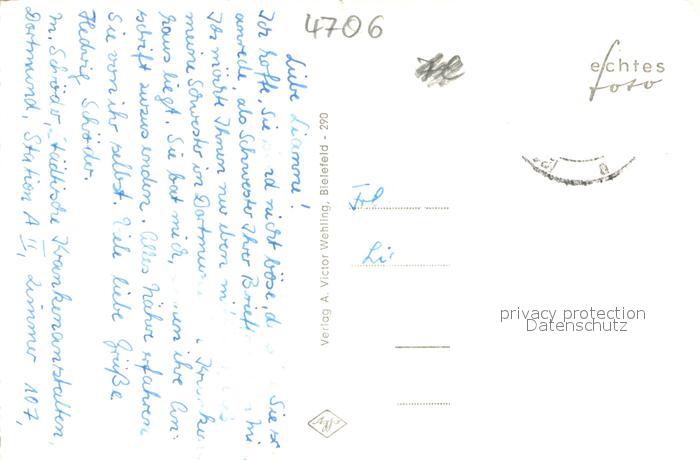 4706
echtes
foto
Liebe Lianne!
Ich hoffe, Sie sind nicht böse, d Sie so
anrede, als Schwester Ihrer Brieff
Ich möchte Ihnen nur eben mi
meine Schwester in Dortmund Kranken
haus liegt. Sie bat mich, Ihnen ihre An-
schrift zuzusenden. Alles Nähere erfahren
Sie von ihr selbst. Viele liebe Grüße
Hedwig Schröder.
M. Schröder, Städtische Krankenanstalten,
Dortmund, Station A II, Zimmer 107,
Verlag A. Victor Wehling, Bielefeld - 290
Frl
Li
privacy protection
Datenschutz